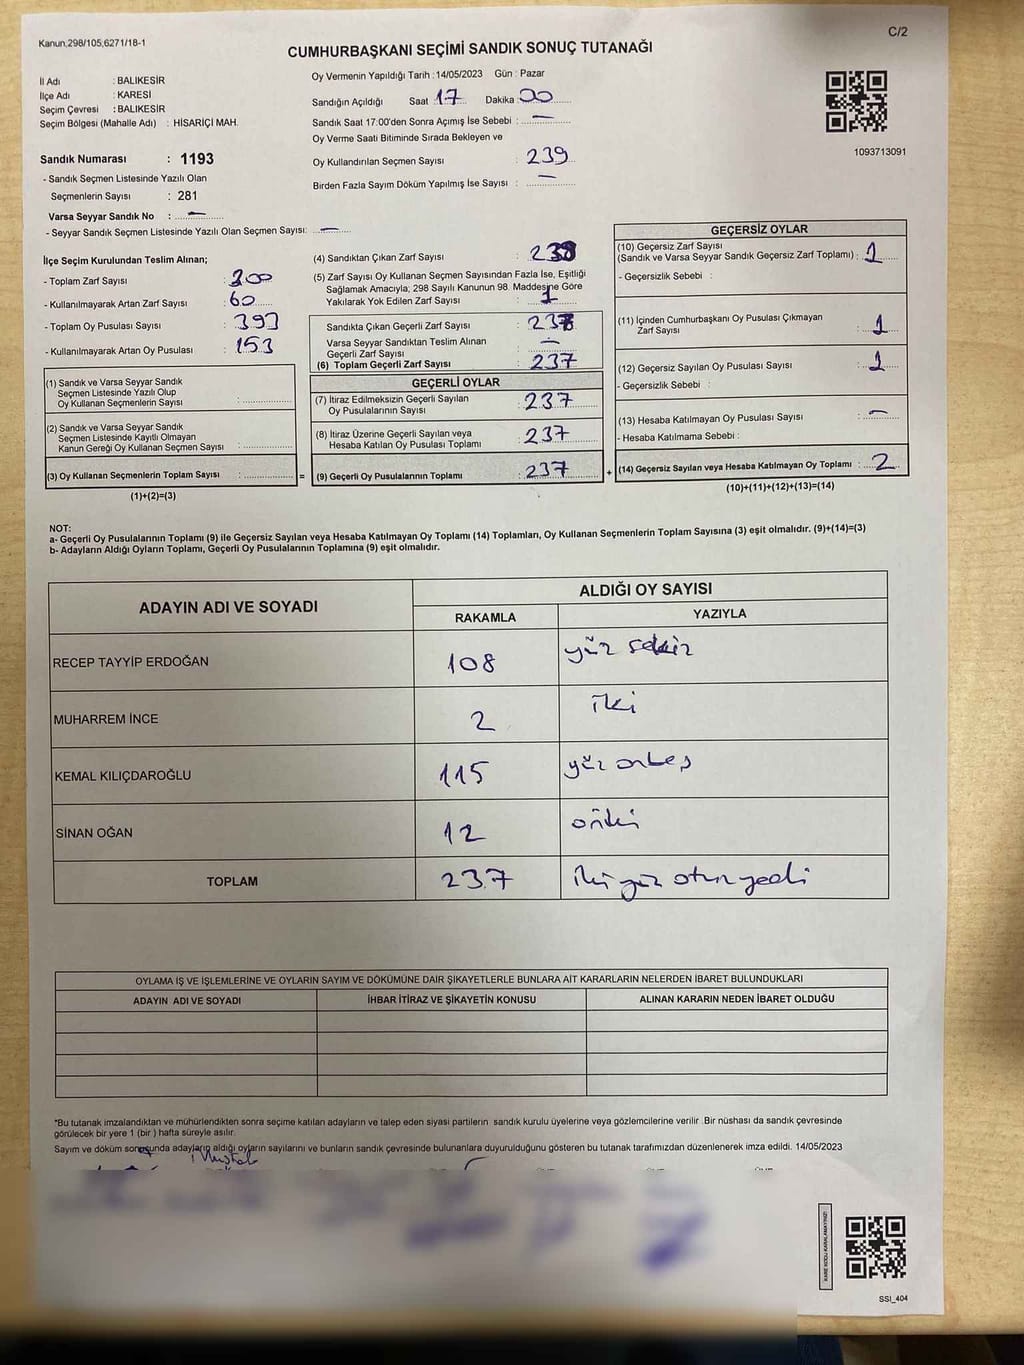 Kanun;298/105;6271/18-1
C/2
CUMHURBAŞKANI SEÇİMİ SANDIK SONUÇ TUTANAĞI
İl Adı : BALIKESİR
İlçe Adı : KARESİ
Seçim Çevresi : BALIKESİR
Seçim Bölgesi (Mahalle Adı) : HİSARİÇİ MAH.
Oy Vermenin Yapıldığı Tarih : 14/05/2023 Gün : Pazar
Sandığın Açıldığı Saat 17 Dakika : 00
Sandık Saat 17:00'den Sonra Açımış İse Sebebi : —
Oy Verme Saati Bitiminde Sırada Bekleyen ve
Oy Kullandırılan Seçmen Sayısı : 239
Birden Fazla Sayım Döküm Yapılmış İse Sayısı : —
1093713091
Sandık Numarası : 1193
- Sandık Seçmen Listesinde Yazılı Olan
Seçmenlerin Sayısı : 281
Varsa Seyyar Sandık No : —
- Seyyar Sandık Seçmen Listesinde Yazılı Olan Seçmen Sayısı: —
İlçe Seçim Kurulundan Teslim Alınan;
- Toplam Zarf Sayısı : 300
- Kullanılmayarak Artan Zarf Sayısı : 60
- Toplam Oy Pusulası Sayısı : 393
- Kullanılmayarak Artan Oy Pusulası : 153
(1) Sandık ve Varsa Seyyar Sandık
Seçmen Listesinde Yazılı Olup
Oy Kullanan Seçmenlerin Sayısı :
(2) Sandık ve Varsa Seyyar Sandık
Seçmen Listesinde Kayıtlı Olmayan
Kanun Gereği Oy Kullanan Seçmen Sayısı :
(3) Oy Kullanan Seçmenlerin Toplam Sayısı :
=
(1)+(2)=(3)
(4) Sandıktan Çıkan Zarf Sayısı :
(5) Zarf Sayısı Oy Kullanan Seçmen Sayısından Fazla İse, Eşitliği
Sağlamak Amacıyla; 298 Sayılı Kanunun 98. Maddesine Göre
Yakılarak Yok Edilen Zarf Sayısı : 1
Sandıkta Çıkan Geçerli Zarf Sayısı :
Varsa Seyyar Sandıktan Teslim Alınan
Geçerli Zarf Sayısı : —
(6) Toplam Geçerli Zarf Sayısı : 237
GEÇERLİ OYLAR
(7) İtiraz Edilmeksizin Geçerli Sayılan
Oy Pusulalarının Sayısı : 237
(8) İtiraz Üzerine Geçerli Sayılan veya
Hesaba Katılan Oy Pusulası Toplamı : 237
(9) Geçerli Oy Pusulalarının Toplamı : 237
+
GEÇERSİZ OYLAR
(10) Geçersiz Zarf Sayısı
(Sandık ve Varsa Seyyar Sandık Geçersiz Zarf Toplamı) : 1
- Geçersizlik Sebebi :
(11) İçinden Cumhurbaşkanı Oy Pusulası Çıkmayan
Zarf Sayısı : 1
(12) Geçersiz Sayılan Oy Pusulası Sayısı : 1
- Geçersizlik Sebebi :
(13) Hesaba Katılmayan Oy Pusulası Sayısı : —
- Hesaba Katılmama Sebebi :
(14) Geçersiz Sayılan veya Hesaba Katılmayan Oy Toplamı : 2
(10)+(11)+(12)+(13)=(14)
NOT:
a- Geçerli Oy Pusulalarının Toplamı (9) ile Geçersiz Sayılan veya Hesaba Katılmayan Oy Toplamı (14) Toplamları, Oy Kullanan Seçmenlerin Toplam Sayısına (3) eşit olmalıdır. (9)+(14)=(3)
b- Adayların Aldığı Oyların Toplamı, Geçerli Oy Pusulalarının Toplamına (9) eşit olmalıdır.
ADAYIN ADI VE SOYADI
ALDIĞI OY SAYISI
RAKAMLA YAZIYLA
RECEP TAYYİP ERDOĞAN 108 yüz sekiz
MUHARREM İNCE 2 iki
KEMAL KILIÇDAROĞLU 115 yüz onbeş
SİNAN OĞAN 12 oniki
TOPLAM 237 iki yüz otuz yedi
OYLAMA İŞ VE İŞLEMLERİNE VE OYLARIN SAYIM VE DÖKÜMÜNE DAİR ŞİKAYETLERLE BUNLARA AİT KARARLARIN NELERDEN İBARET BULUNDUKLARI
ADAYIN ADI VE SOYADI İHBAR İTİRAZ VE ŞİKAYETİN KONUSU ALINAN KARARIN NEDEN İBARET OLDUĞU
*Bu tutanak imzalandıktan ve mühürlendikten sonra seçime katılan adayların ve talep eden siyasi partilerin sandık kurulu üyelerine veya gözlemcilerine verilir. Bir nüshası da sandık çevresinde
görülecek bir yere 1 (bir) hafta süreyle asılır.
Sayım ve döküm sonucunda adayların aldığı oyların sayılarını ve bunların sandık çevresinde bulunanlara duyurulduğunu gösteren bu tutanak tarafımızdan düzenlenerek imza edildi. 14/05/2023
KARE KODU KARALAMAYINIZ!
SSI_404